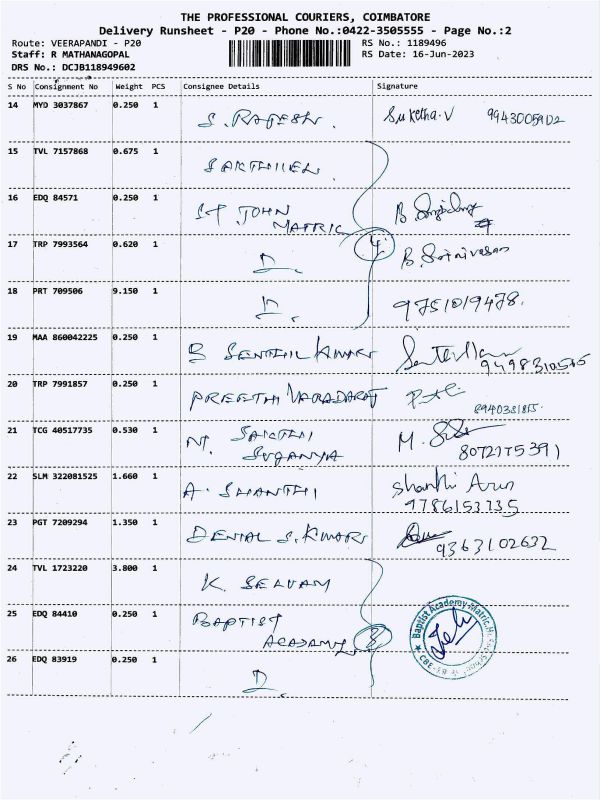 THE PROFESSIONAL COURIERS, COIMBATORE
Delivery Runsheet - P20 - Phone No.:0422-3505555 - Page No.:2
Route: VEERAPANDI - P20 RS No.: 1189496
Staff: R MATHANAGOPAL RS Date: 16-Jun-2023
DRS No.: DCJB118949602
S No Consignment No Weight PCS Consignee Details Signature
14 MYD 3037867 0.250 1 S. RAJESH. Suketha.V
15 TVL 7157868 0.675 1
16 EDQ 84571 0.250 1 ST. JOHN
MATRIC B.
17 TRP 7993564 0.620 1 D. 4 B. Srinivasan
18 PRT 709506 9.150 1 D. 9751019478.
19 MAA 860042225 0.250 1 B SENTHIL KUMAR
20 TRP 7991857 0.250 1 PREETHI VARADARAJ
21 TCG 40517735 0.530 1 N. SAKTHI M.
SUGANYA
22 SLM 322081525 1.660 1 A. SHANTHI Shanthi Arun
9786153735
23 PGT 7209294 1.350 1 DENIAL S. KUMAR 9363102632
24 TVL 1723220 3.800 1 K. SELVAM
25 EDQ 84410 0.250 1 BAPTIST
ACADAMY 3 Baptist Academy Matric.
26 EDQ 83919 0.250 1 D.